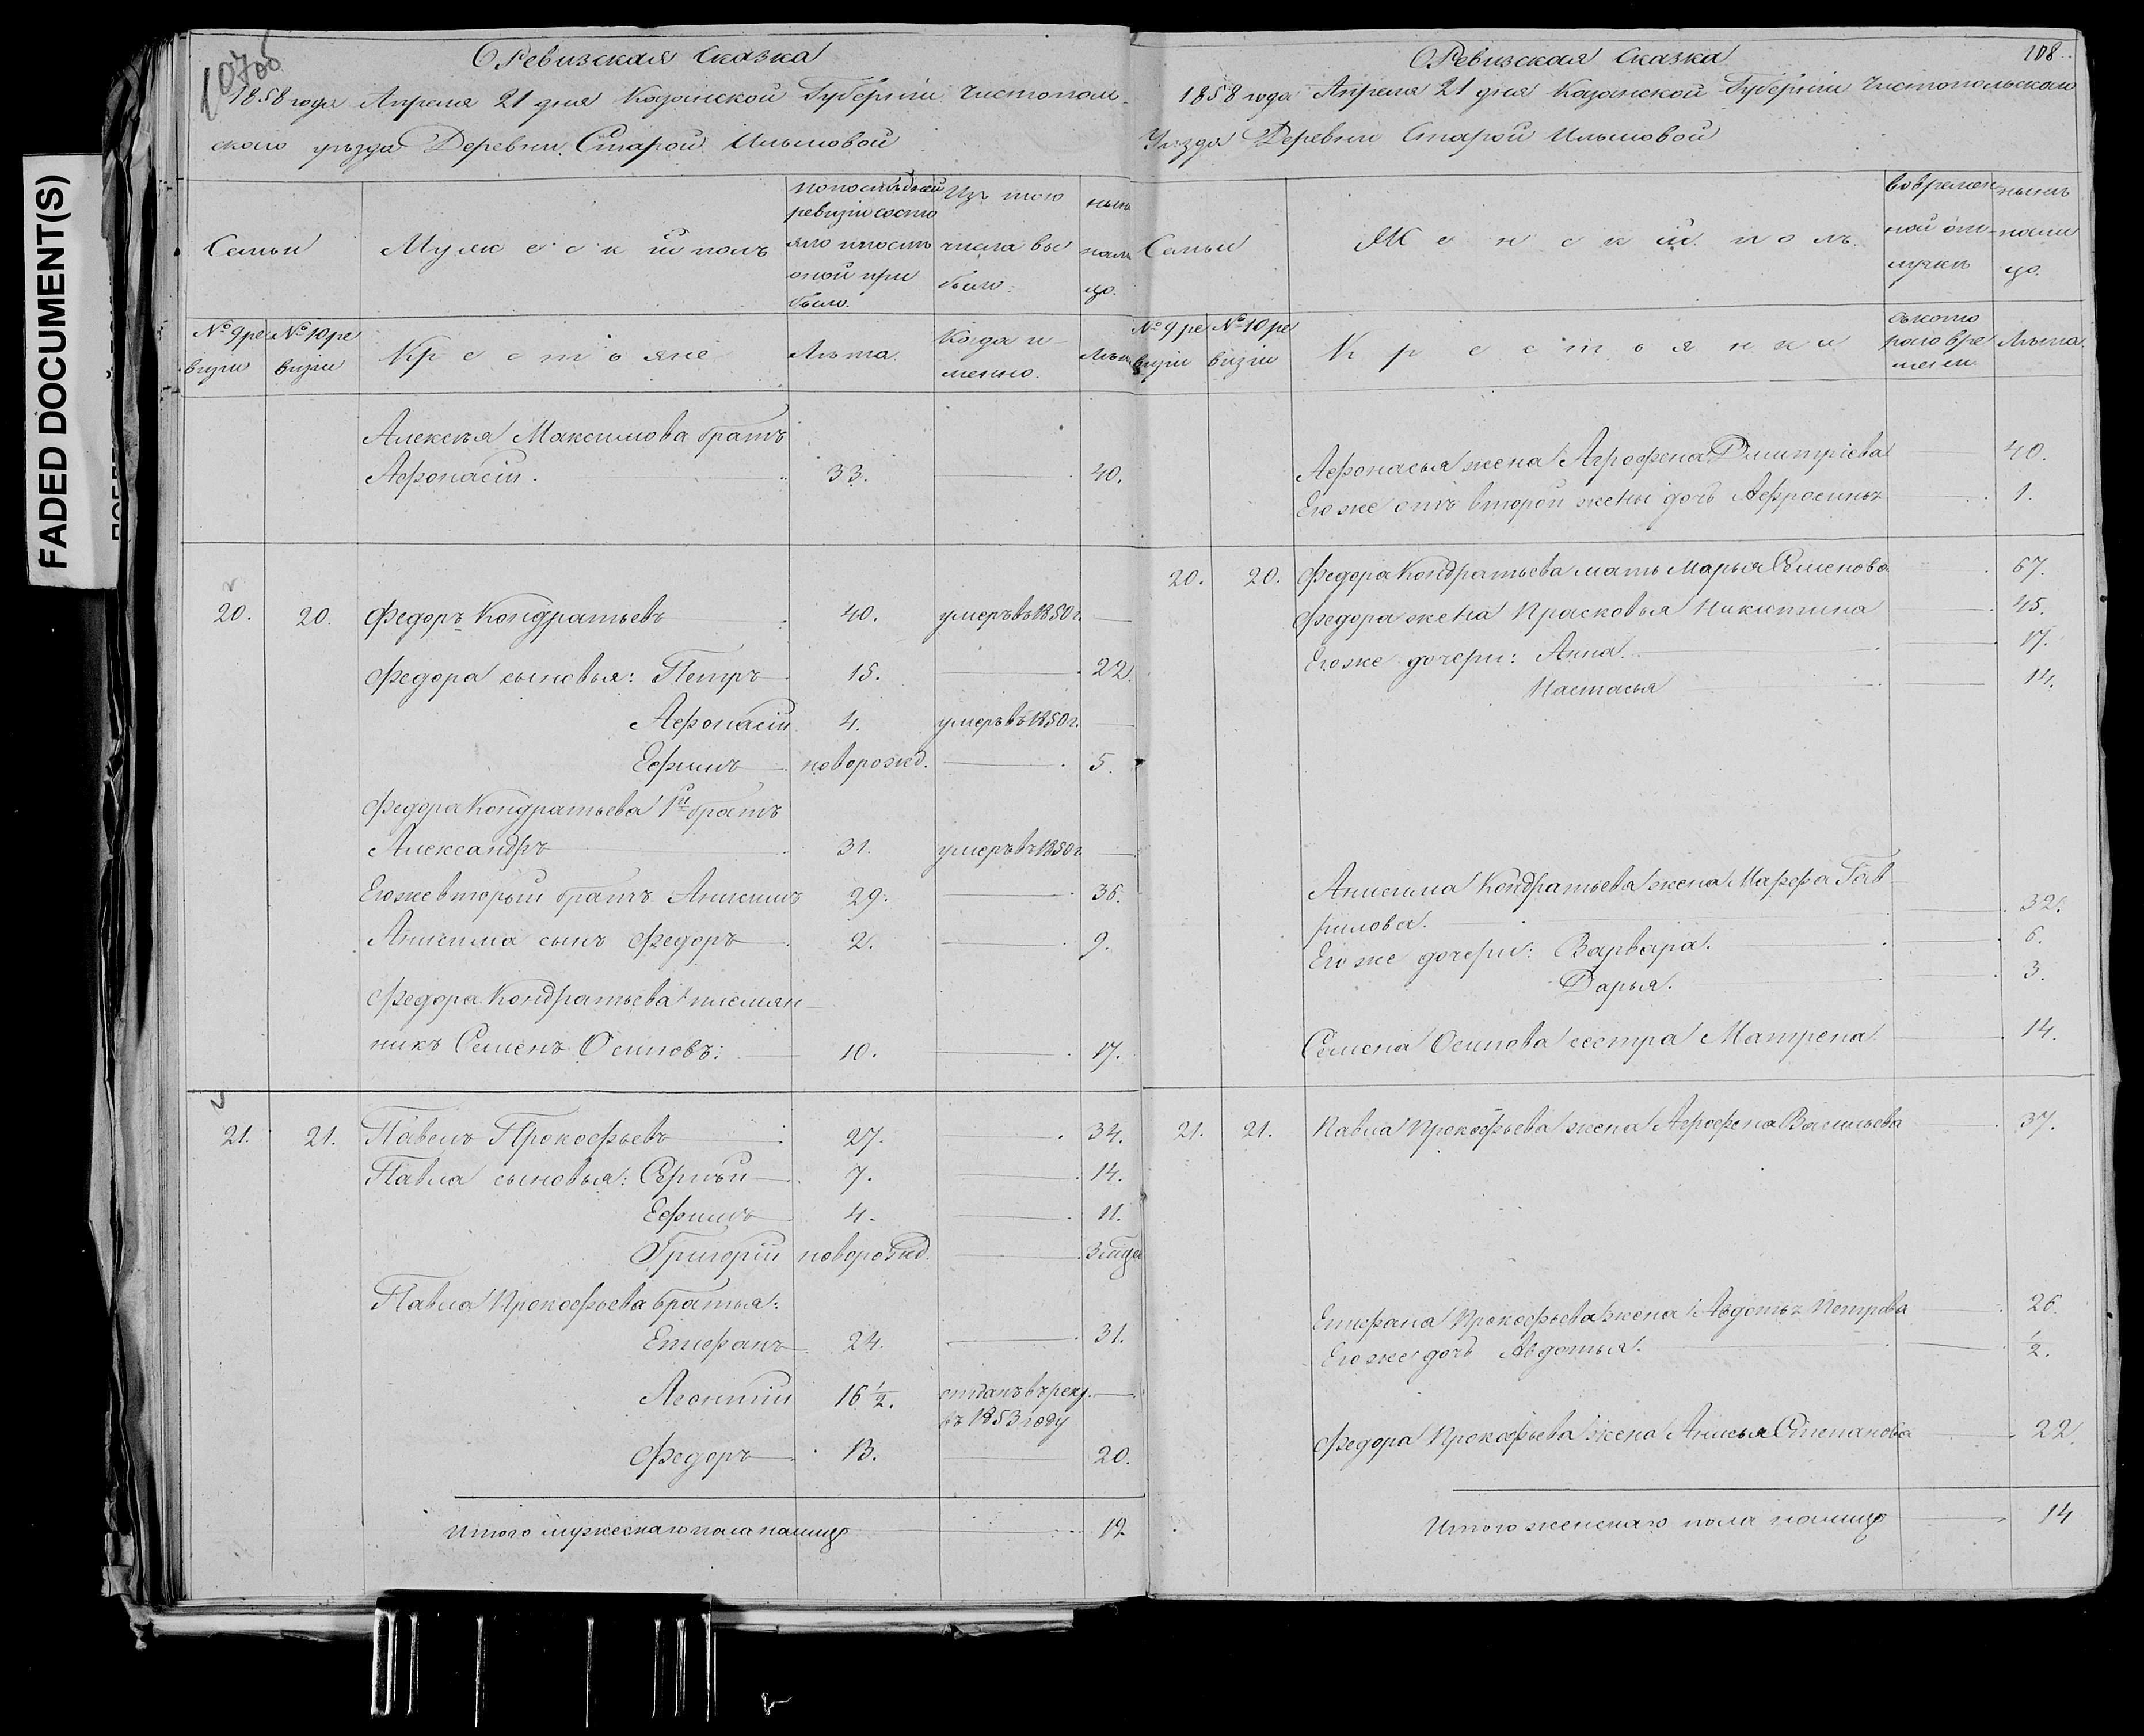 FADED DOCUMENT(S)
Ревизская Сказка
1858 года Апреля 21 дня Казанской Губерніи Чистополь-
скаго уѣзда Деревни Старой Ильмовой
Семьи
Мужескій полъ
по послѣдней
ревизіи состо
яло и послѣ
оной при
было.
Изъ того
числа вы
было.
нынѣ
на ли
цо.
№ 9 ре
визіи
№ 10 ре
визіи
Крестьяне
Лѣта
Когда и
менно.
Лѣта
Алексѣя Максимова братъ
Афонасій. 33. 40.
20. 20. Федоръ Кондратьевъ 40. умеръ въ 1850 г.
Федора сыновья: Петръ 15. 22.
Афонасій 4. умеръ въ 1850 г.
Ефимъ новорожд. 5.
Федора Кондратьева 1й братъ
Александръ 31. умеръ въ 1850 г.
Его же вторый братъ Анисимъ 29. 36.
Анисима сынъ Федоръ 2. 9.
Федора Кондратьева племян-
никъ Семенъ Осиповъ: 10. 17.
21. 21. Павелъ Прокофьевъ 27. 34.
Павла сыновья: Сергѣй 7. 14.
Ефимъ 4. 11.
Григорій новорожд. 3
Павла Прокофьева братья:
Епифанъ 24. 31.
Леонтій 16 1/2. отданъ въ рекр.
въ 1853 году
Федоръ 13. 20.
Итого мужескаго пола налицо 12
Ревизская Сказка 108
1858 года Апреля 21 дня Казанской Губерніи Чистопольскаго
Уѣзда Деревни Старой Ильмовой
Семьи
Женскій полъ.
во времен
ной от-
лучкѣ
нынѣ
нали
цо.
№ 9 ре
визіи
№ 10 ре
визіи
Крестьянки
съ кото
раго вре
мени.
Лѣта.
Афонасья жена Агрофена Дмитріева 40.
Его же отъ второй жены дочь Афросинья 1.
20. 20. Федора Кондратьева мать Марья Семенова 67.
Федора жена Прасковья Никитина 45.
Его же дочери: Анна. 17.
Настасья 14.
Анисима Кондратьева жена Марфа Гав-
рилова. 32.
Его же дочери: Варвара. 6.
Дарья. 3.
Семена Осипова сестра Матрена 14.
21. 21. Павла Прокофьева жена Агрофена Васильева 37.
Епифана Прокофьева жена Авдотья Петрова 26.
Его же дочь Авдотья. 1/2.
Федора Прокофьева жена Анисья Степанова 22.
Итого женскаго пола налицо 14